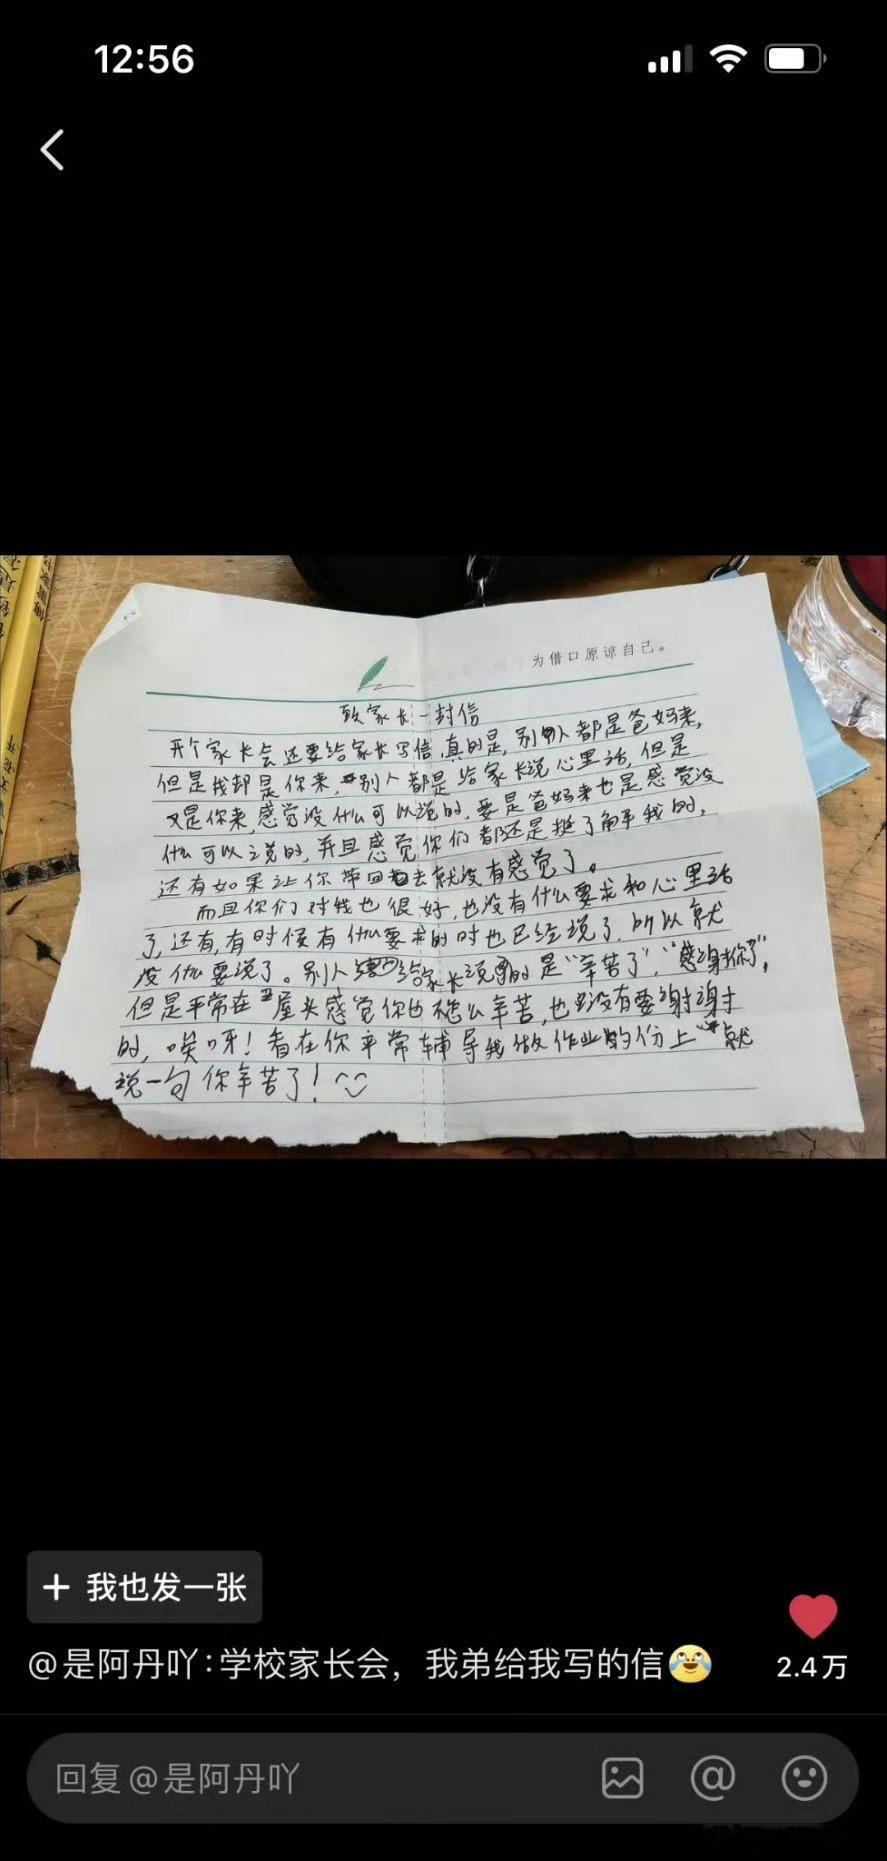 12:56
为借口原谅自己。
致家长一封信
开个家长会还要给家长写信,真的是,别人都是爸妈来,
但是我却是你来,别人都是给家长说心里话,但是
又是你来,感觉没什么可以说的,要是爸妈来也是感觉没
什么可以说的,并且感觉你们都还是挺了解我的,
还有如果让你带回去就没有感觉了。
而且你们对我也很好,也没有什么要求和心里话
了,还有,有时候有什么要求的时也已经说了,所以就
没什么要说了。别人给家长说的是“辛苦了”,“感谢你了”,
但是平常在屋头感觉你也不怎么辛苦,也没有要谢谢
的,唉呀!看在你平常辅导我做作业的份上就
说一句你辛苦了!
+ 我也发一张
@是阿丹吖:学校家长会，我弟给我写的信
2.4万
回复@是阿丹吖